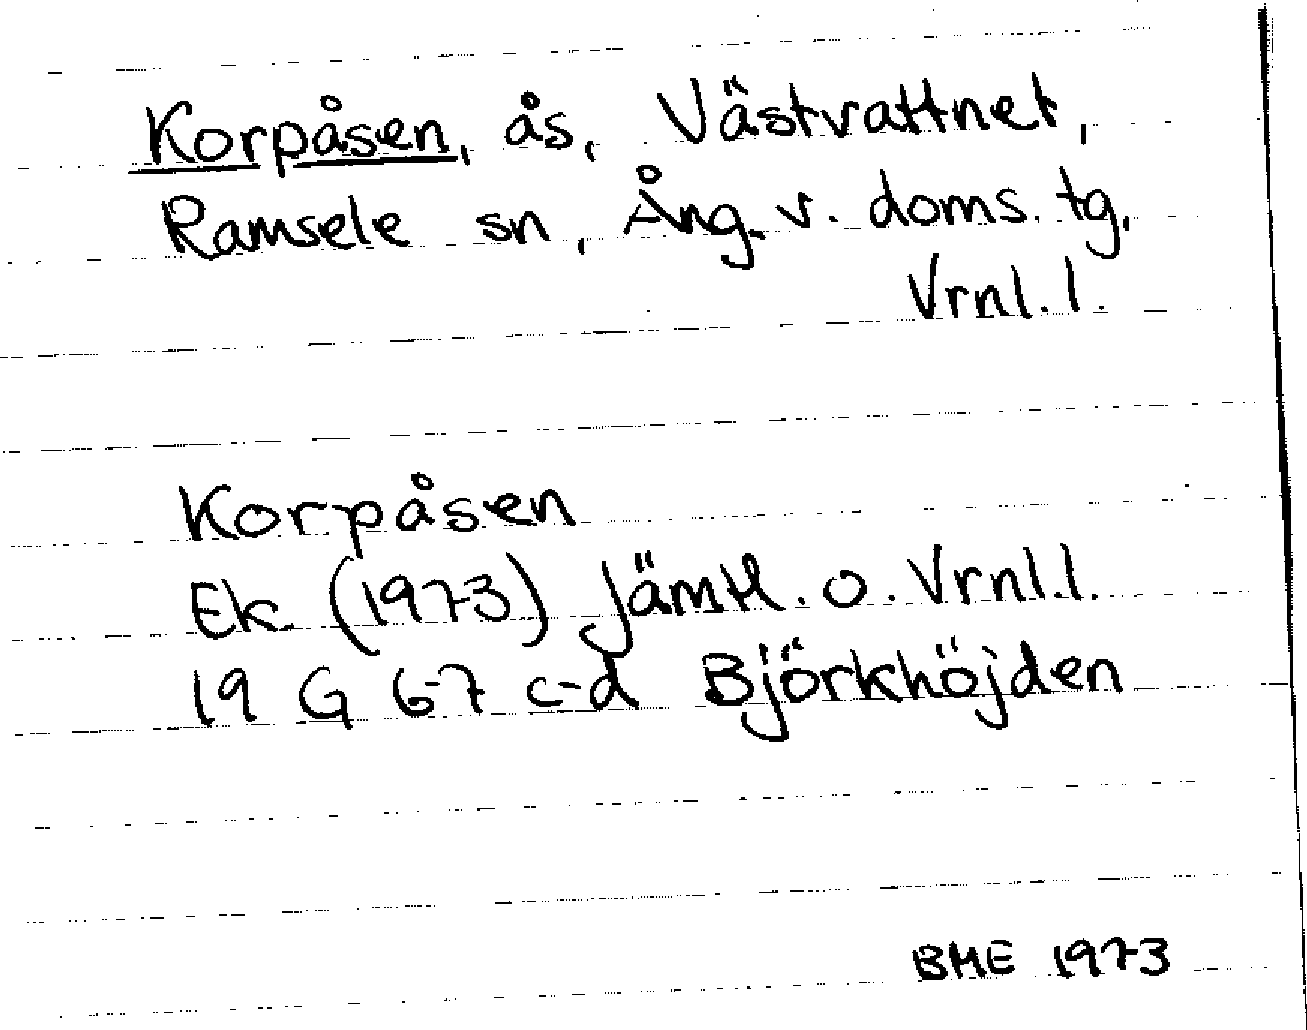 Korpåsen, ås, Västvattnet,
Ramsele sn, Ång. v. doms. tg,
Vrnl. l.
Korpåsen
Ek (1973) Jämtl. o. Vrnl.l.
19 G 6-7 c-d Björkhöjden
BME 1973